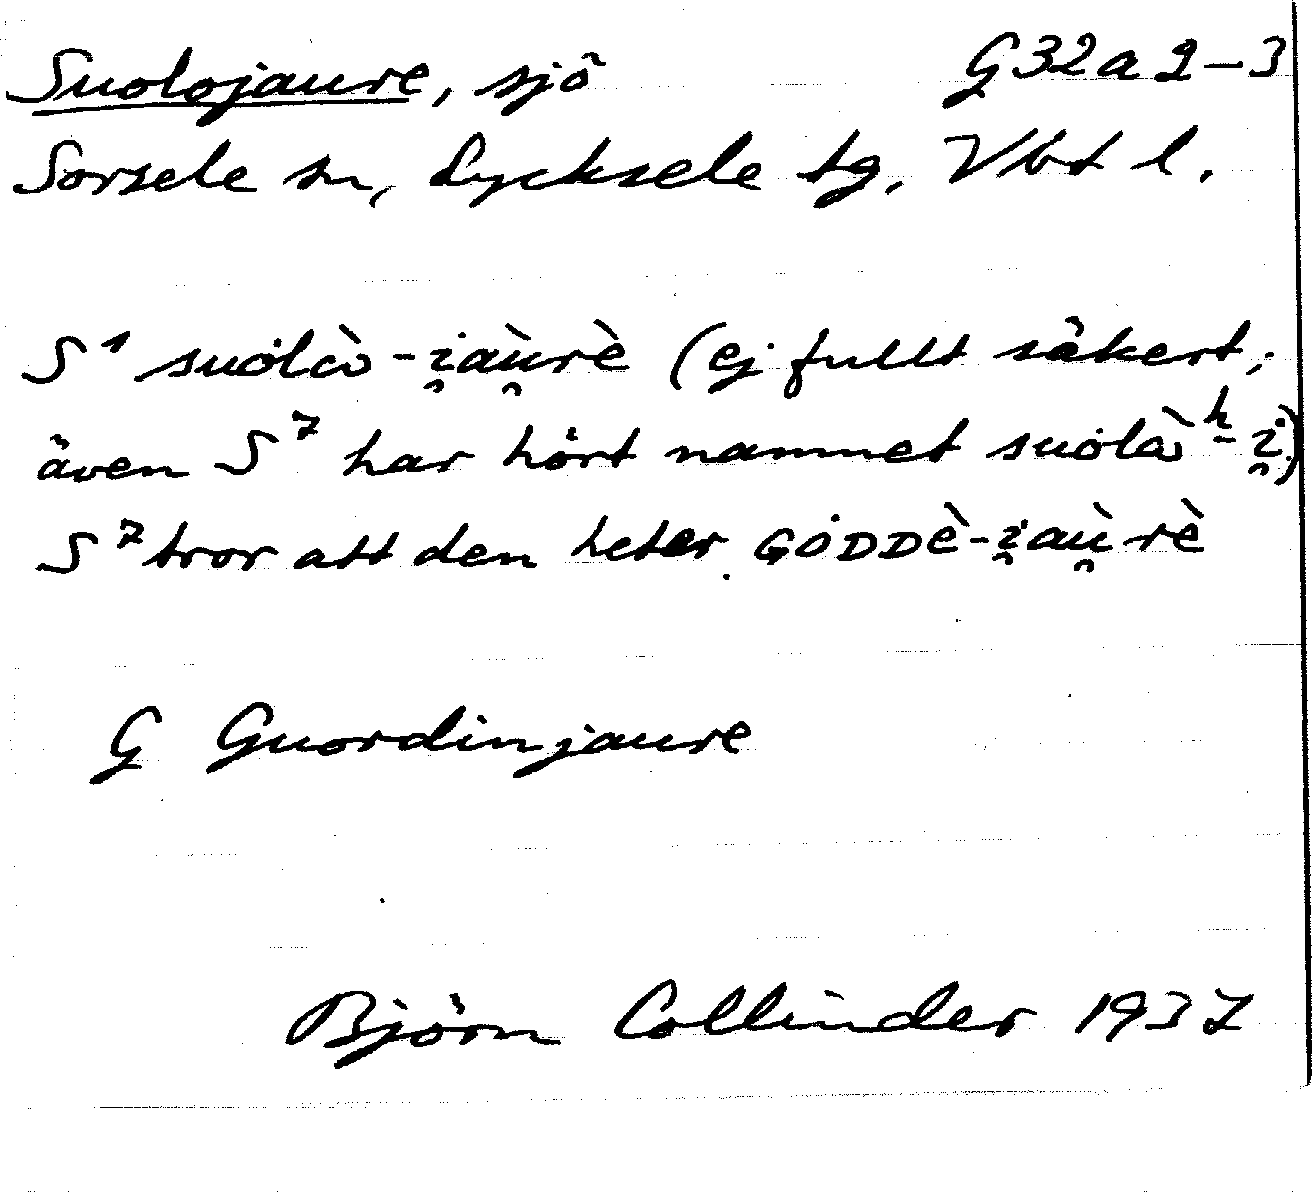 Suolojaure, sjö G32a2-3
Sorsele sn, Lycksele tg, Vbt l.
S¹ suȯlɑ̀ -i̯aù̯rè (ej fullt säkert,
även S⁷ har hört namnet suȯlɑ̀ʰ-i̯.)
S⁷ tror att den heter GȮDDÈ-i̯aù̯rè
G Guordinjaure
Björn Collinder 1937